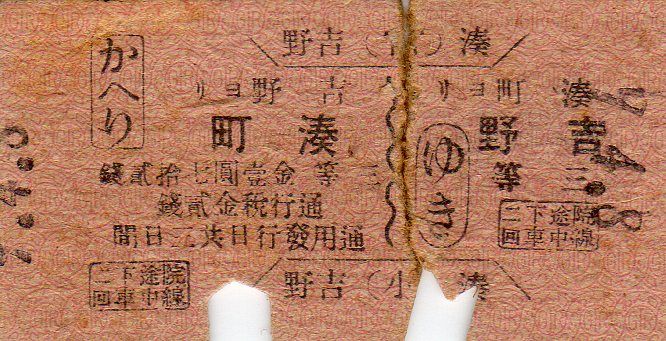 湊（小）吉野
湊町ヨリ
吉野
三等
ゆき
院線途中下車二回
吉野ヨリ
湊町
かへり
三等金壹圓七拾貳錢
通行税金貳錢
通用發行日共二日間
院線途中下車二回
湊（小）吉野